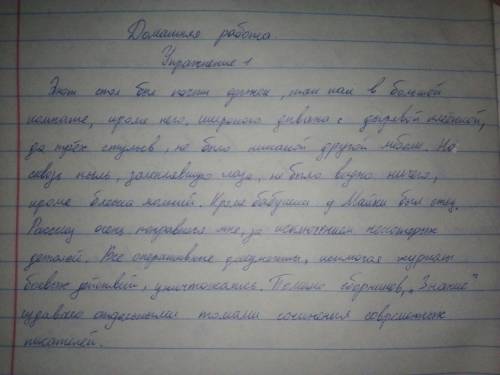 Домашняя работа.
Упражнение 1
Этот стол был почти одинок, так как в большой
комнате, кроме него, широкого дивана с дырявой клеёнкой,
да трёх стульев, не было никакой другой мебели. Но
сквозь пыль, залеплявшую глаза, не было видно ничего,
кроме блеска молний. Кроме бабушки у Майки был отец.
Рассказ очень понравился мне, за исключением некоторых
деталей. Все оперативные документы, журнал
боевых действий, уничтожались. Помимо сборников, „Знание"
издавало отдельными томами сочинения современных
писателей.